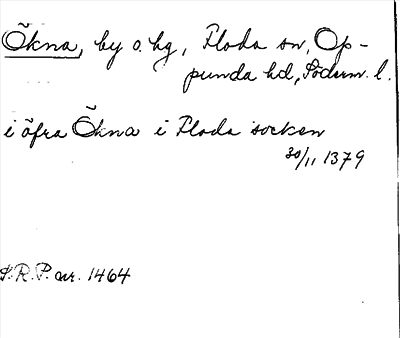 Ökna, by o. hg, Floda sn, Op-
punda hd, Söderm. l.
i öfra Ökna i Floda socken
30/11 1379
S.R.P. nr. 1464